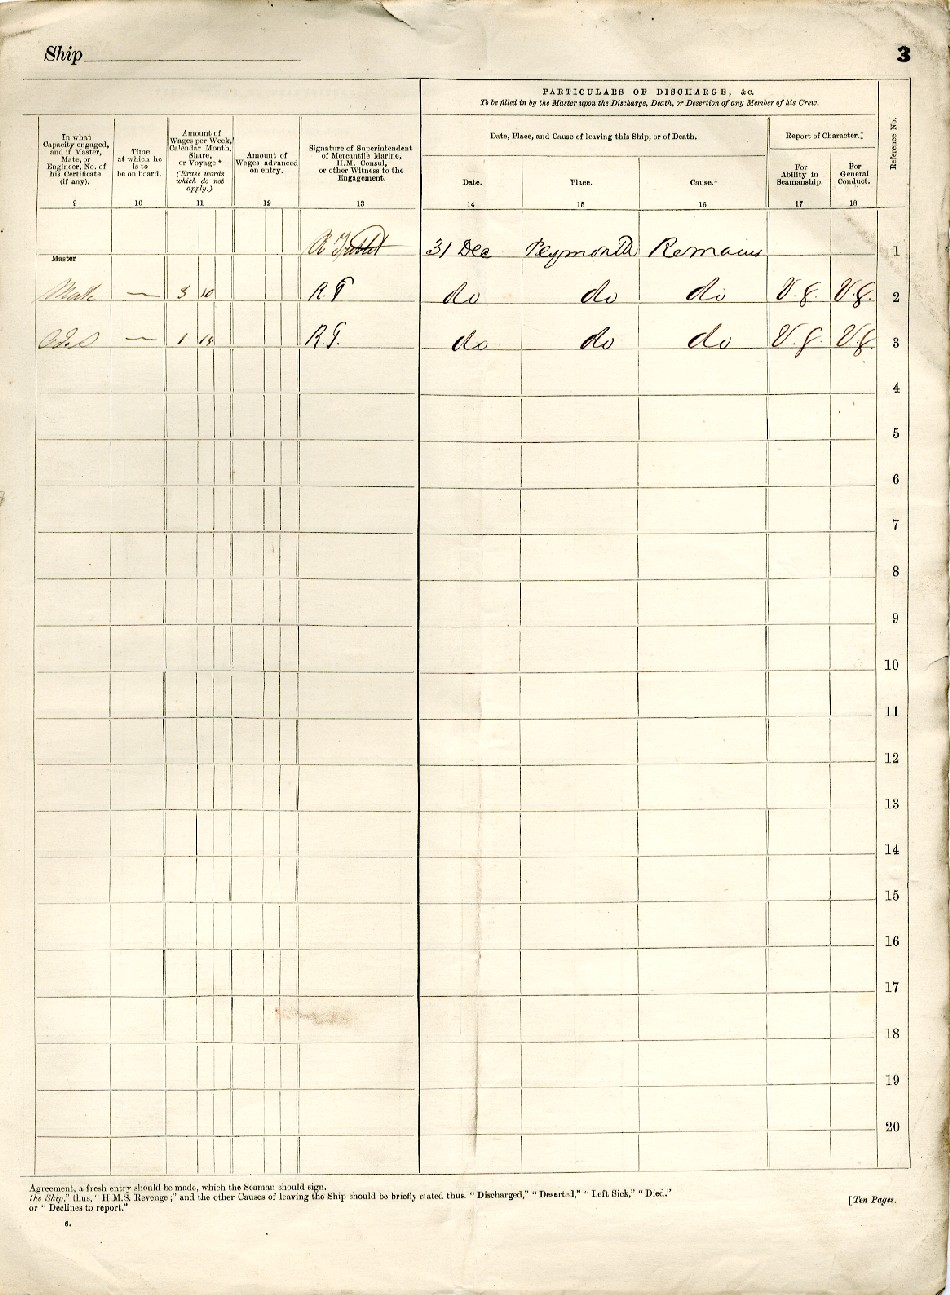 Ship
3
PARTICULARS OF DISCHARGE, &c.
To be filled in by the Master upon the Discharge, Death, or Desertion of any Member of his Crew.
Reference No.
Date, Place, and Cause of leaving this Ship, or of Death.
Report of Character.‡
In what
Capacity engaged,
and if Master,
Mate, or
Engineer, No. of
his Certificate
(if any).
Time
at which he
is to
be on board.
Amount of
Wages per Week,
Calendar Month,
Share,
or Voyage*
(Erase words
which do not
apply.)
Amount of
Wages advanced
on entry.
Signature of Superintendent
of Mercantile Marine,
H.M. Consul,
or other Witness to the
Engagement.
Date.
Place.
Cause.*
For
Ability in
Seamanship.
For
General
Conduct.
9 10 11 12 13 14 15 16 17 18
Master 31 Dec Plymouth Remains 1
Mate — 3 10 R T do do do V.g. V.g. 2
— 1 R T. do do do V.g. V.g. 3
4
5
6
7
8
9
10
11
12
13
14
15
16
17
18
19
20
Agreement, a fresh entry should be made, which the Seaman should sign.
the Ship," thus, "H.M.S. Revenge;" and the other Causes of leaving the Ship should be briefly stated thus. "Discharged," "Deserted," "Left Sick," "Died."
or "Declines to report."
[Ten Pages.
6.